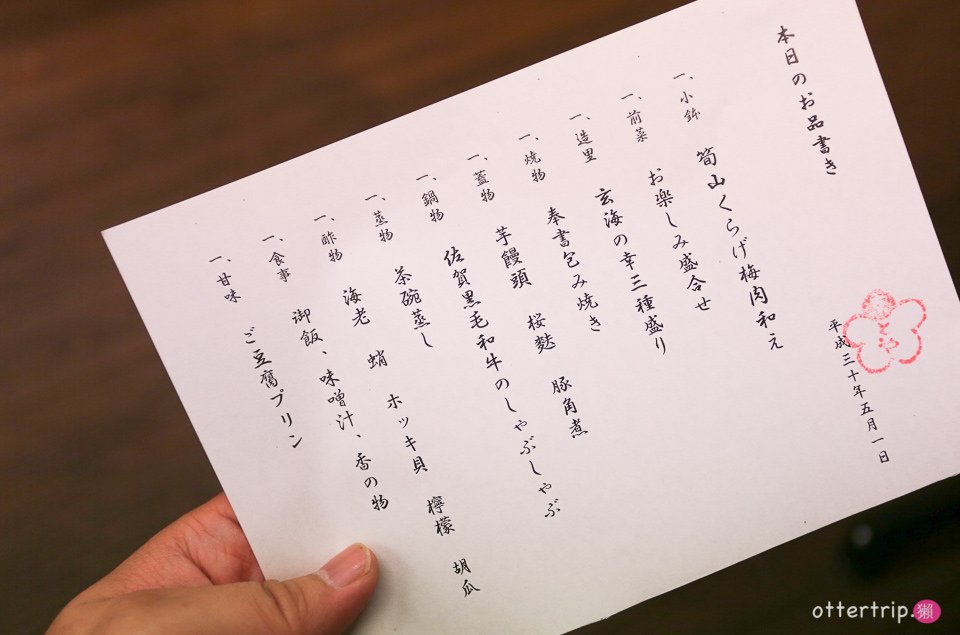 本日のお品書き
一、小鉢 筍山くらげ梅肉和え
一、前菜 お楽しみ盛合せ
一、造里 玄海の幸三種盛り
一、焼物 奉書包み焼き
一、蓋物 芋饅頭 桜麩 豚角煮
一、鍋物 佐賀黒毛和牛のしゃぶしゃぶ
一、蒸物 茶碗蒸し
一、酢物 海老 蛸 ホッキ貝 檸檬 胡瓜
一、食事 御飯、味噌汁、香の物
一、甘味 ご豆腐プリン
平成三十年五月一日
ottertrip.獺